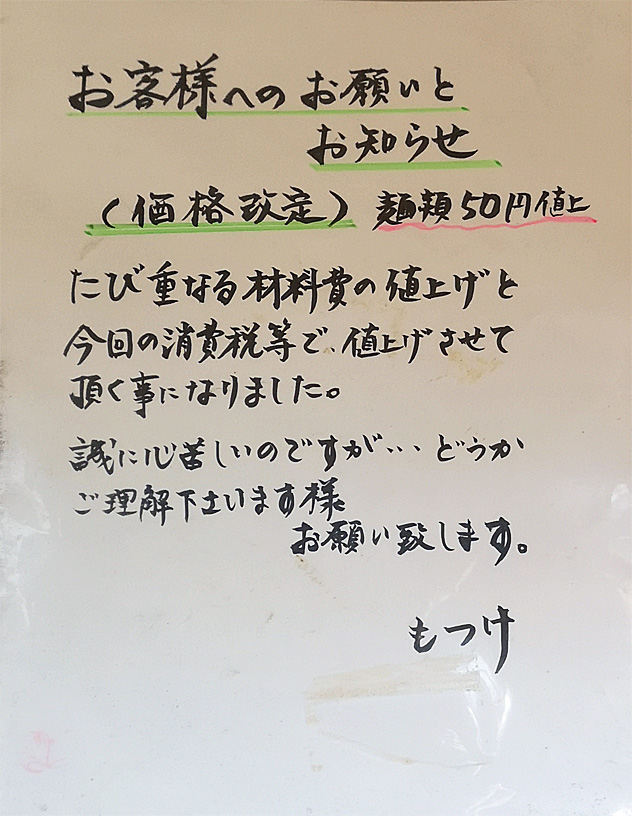 お客様へのお願いと
お知らせ
(価格改定) 麺類50円値上
たび重なる材料費の値上げと
今回の消費税等で、値上げさせて
頂く事になりました。
誠に心苦しいのですが… どうか
ご理解下さいます様
お願い致します。
もつけ